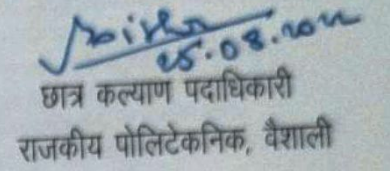 25.08.2022
छात्र कल्याण पदाधिकारी
राजकीय पोलिटेकनिक, वैशाली